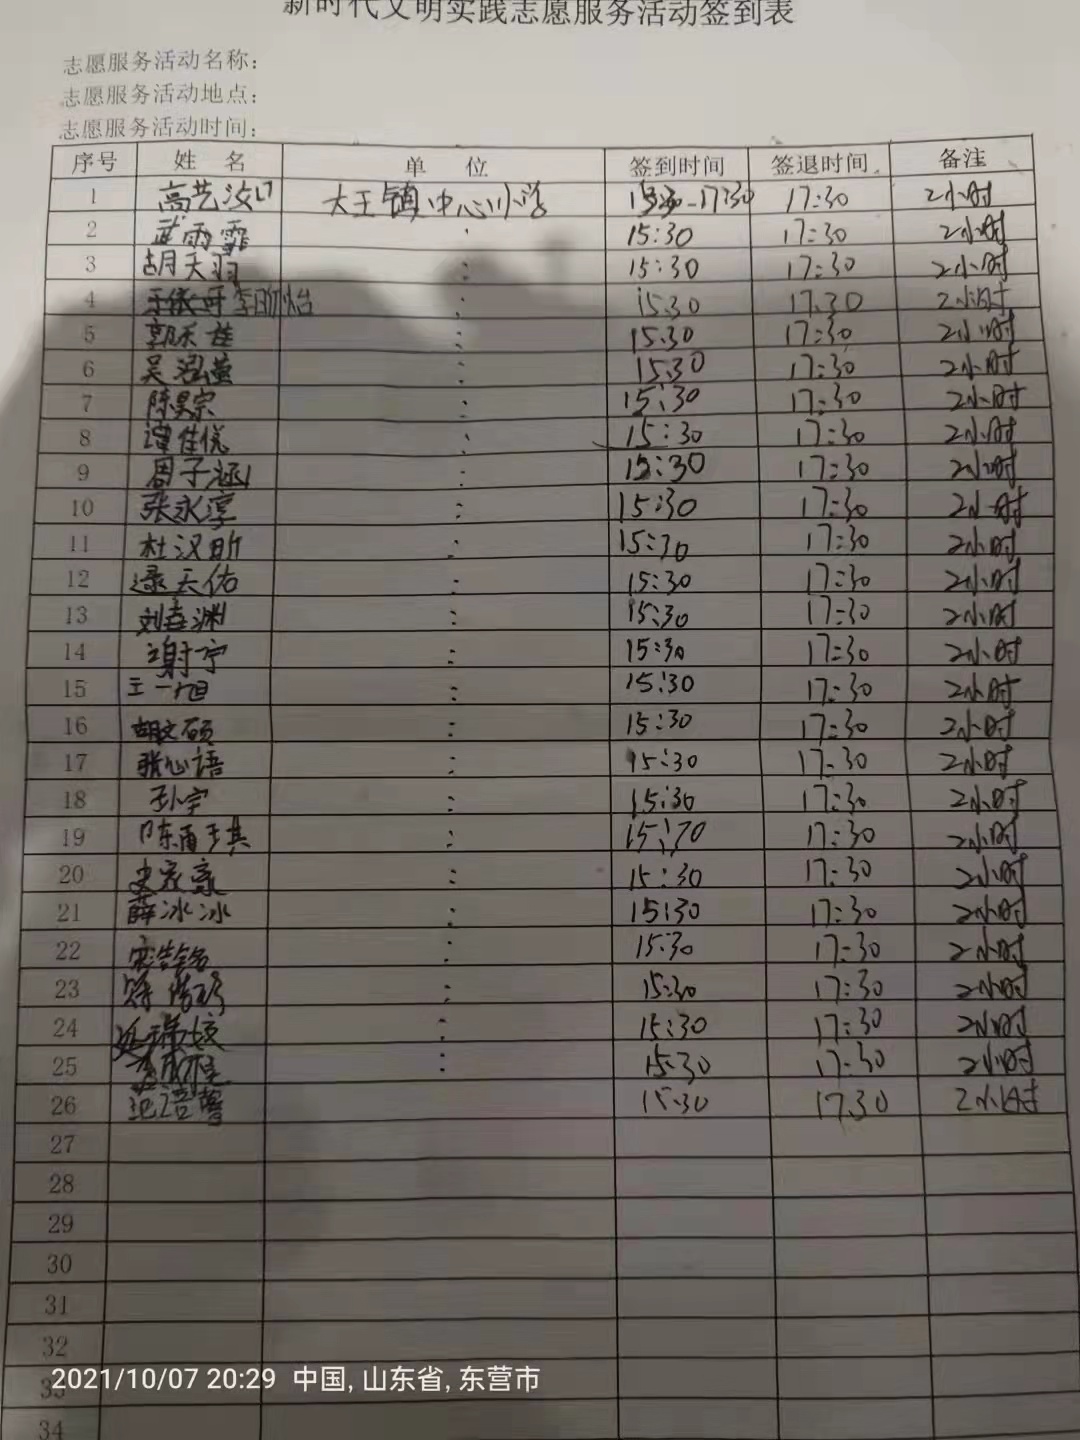 新时代文明实践志愿服务活动签到表
志愿服务活动名称：
志愿服务活动地点：
志愿服务活动时间：
序号 姓 名 单 位 签到时间 签退时间 备注
1 高艺汝 大王镇中心小学 15:30-17:30 17:30 2小时
2 武雨霏 : 15:30 17:30 2小时
3 胡天羽 : 15:30 17:30 2小时
4 李昕怡 : 15:30 17:30 2小时
5 : 15:30 17:30 2小时
6 吴泓萱 : 15:30 17:30 2小时
7 陈昊宗 : 15:30 17:30 2小时
8 谭佳悦 : 15:30 17:30 2小时
9 周子涵 : 15:30 17:30 2小时
10 张永淳 : 15:30 17:30 2小时
11 杜汉昕 : 15:30 17:30 2小时
12 天佑 : 15:30 17:30 2小时
13 刘垚渊 : 15:30 17:30 2小时
14 谢宁 : 15:30 17:30 2小时
15 王一旭 : 15:30 17:30 2小时
16 胡文硕 : 15:30 17:30 2小时
17 张心语 : 15:30 17:30 2小时
18 孙宇 : 15:30 17:30 2小时
19 陈雨琪 : 15:70 17:30 2小时
20 史宏豪 : 15:30 17:30 2小时
21 薛冰冰 : 15:30 17:30 2小时
22 宋浩铭 : 15:30 17:30 2小时
23 : 15:30 17:30 2小时
24 : 15:30 17:30 2小时
25 : 15:30 17:30 2小时
26 范语馨 15:30 17:30 2小时
27
28
29
30
31
32
33
34
2021/10/07 20:29 中国, 山东省, 东营市